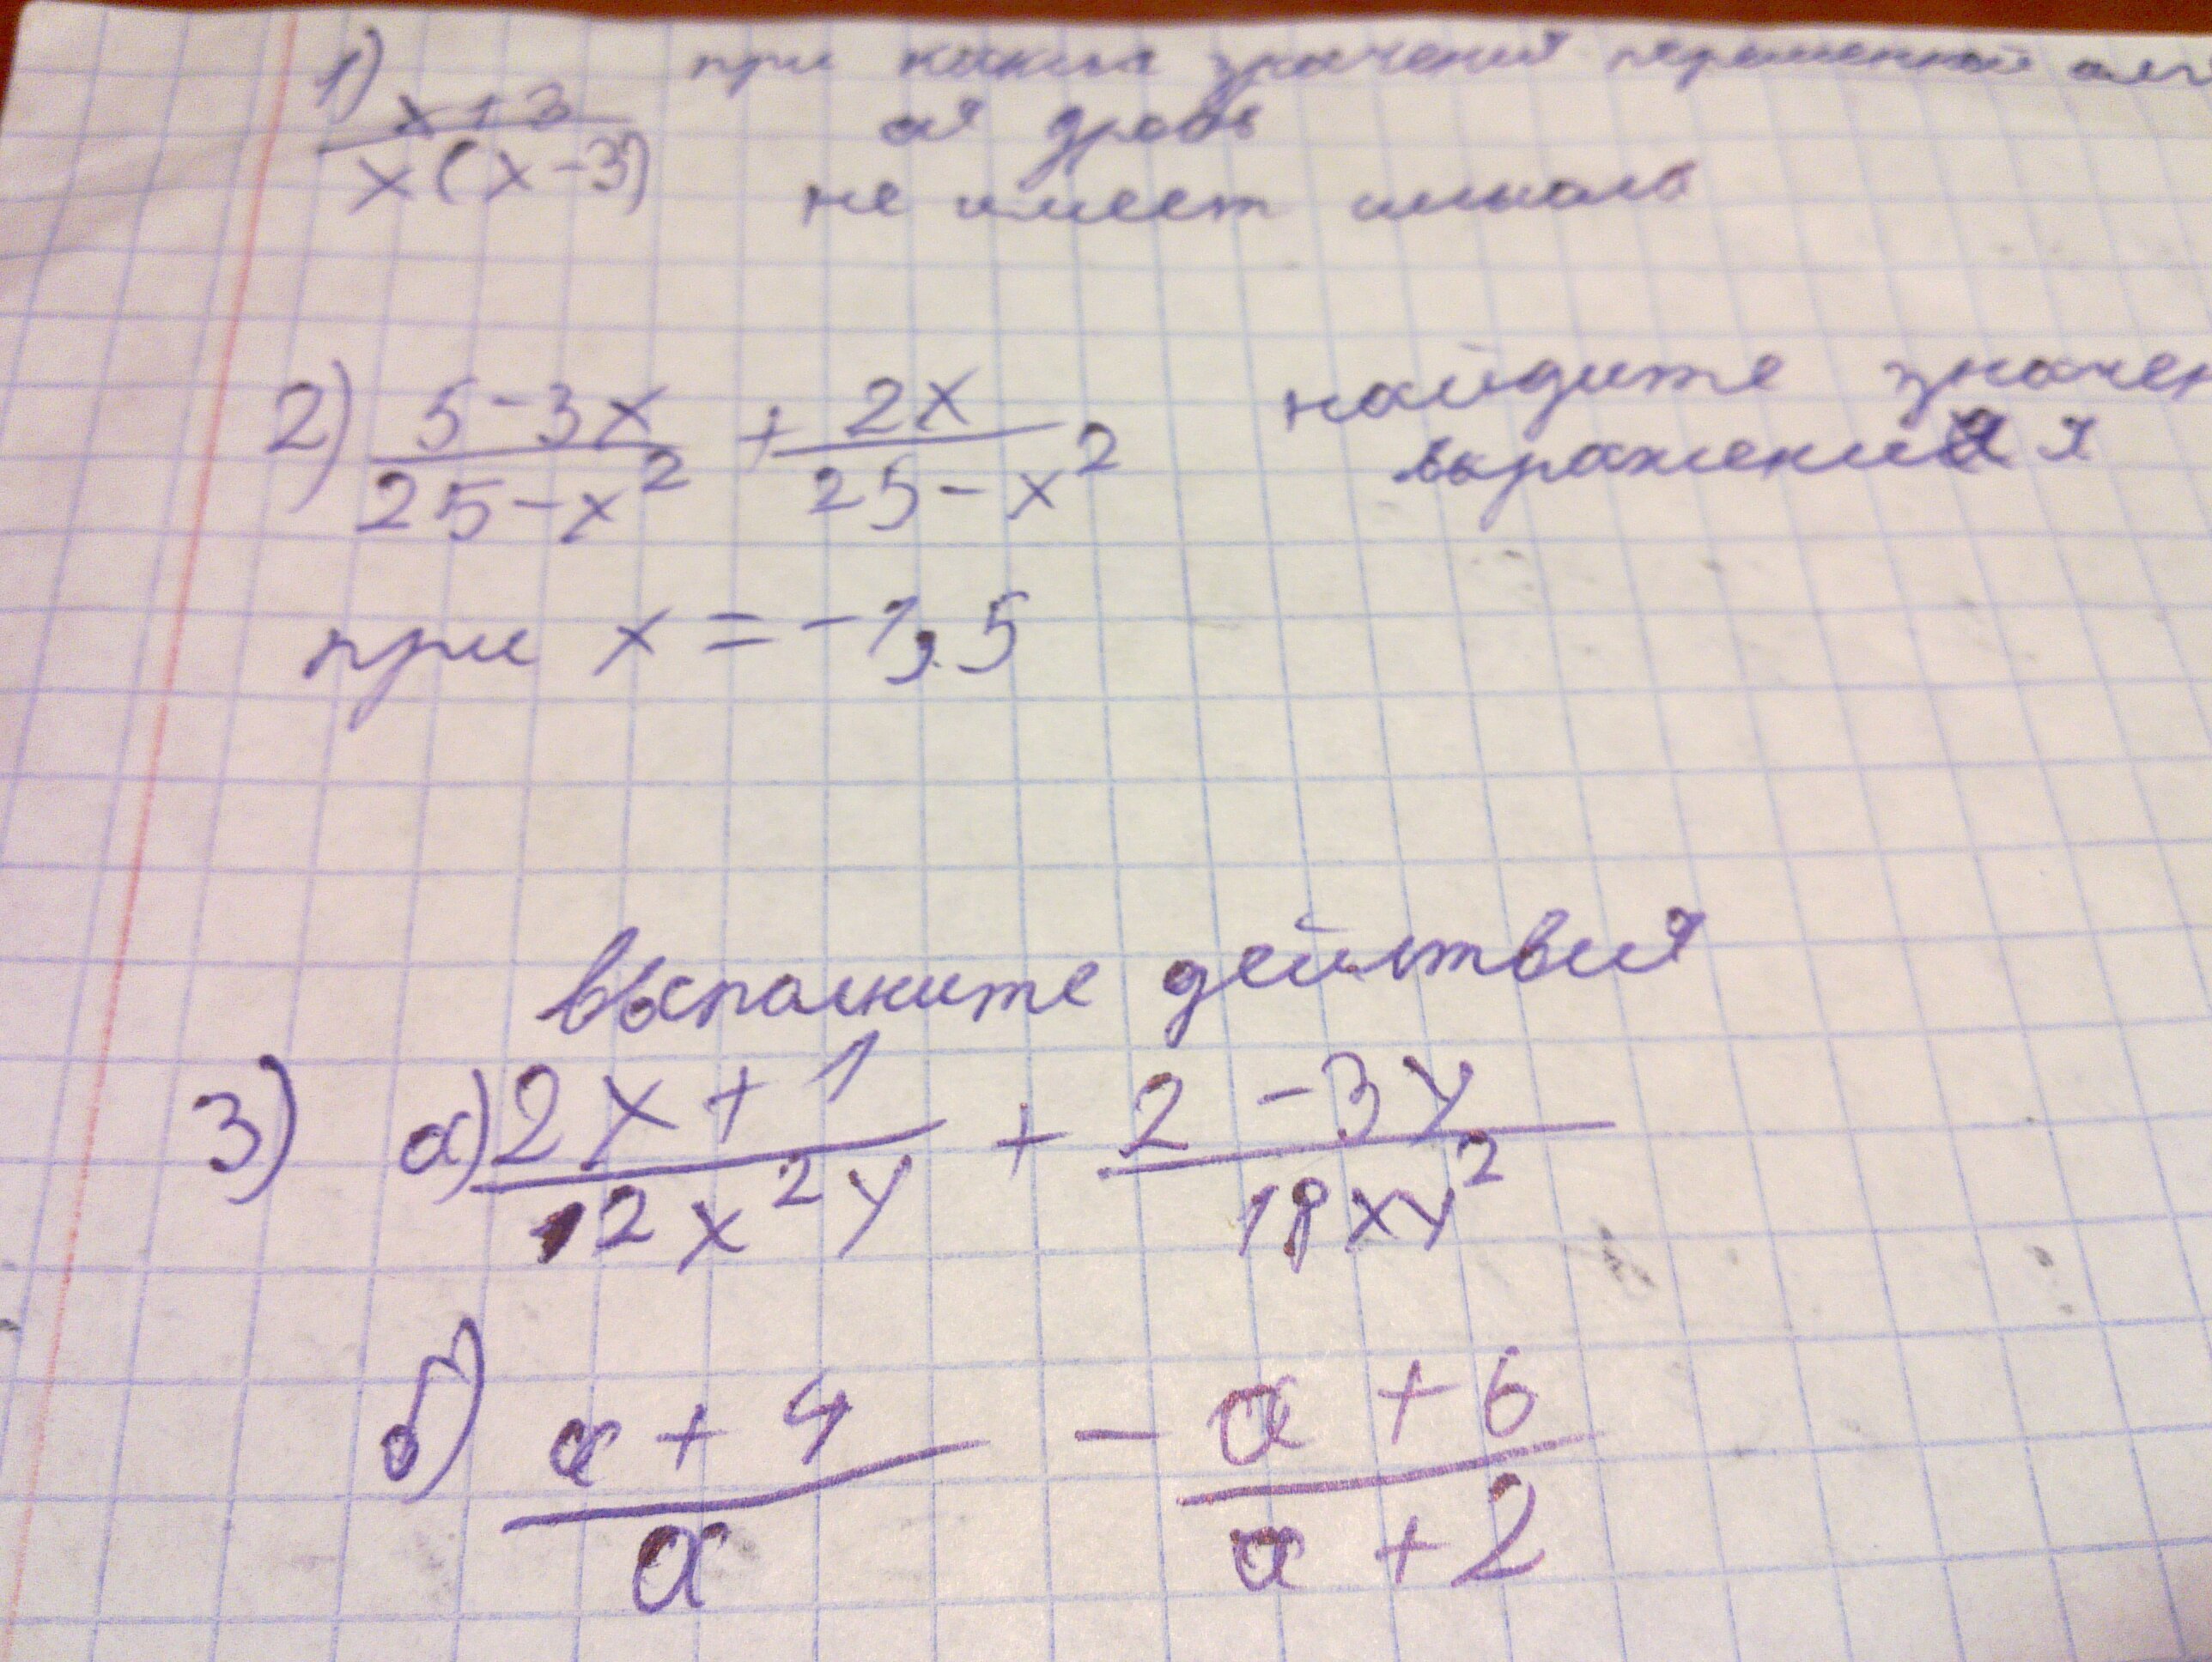 1) x+3 / x(x-3) при каких значений переменной алг
ая дробь
не имеет смысль
2) 5-3x / 25-x² + 2x / 25-x² найдите значен
выражения я
при x = -1,5
выполните действия
3) а) 2x+1 / 12x²y + 2-3y / 18xy²
б) a+4 / a - a+6 / a+2